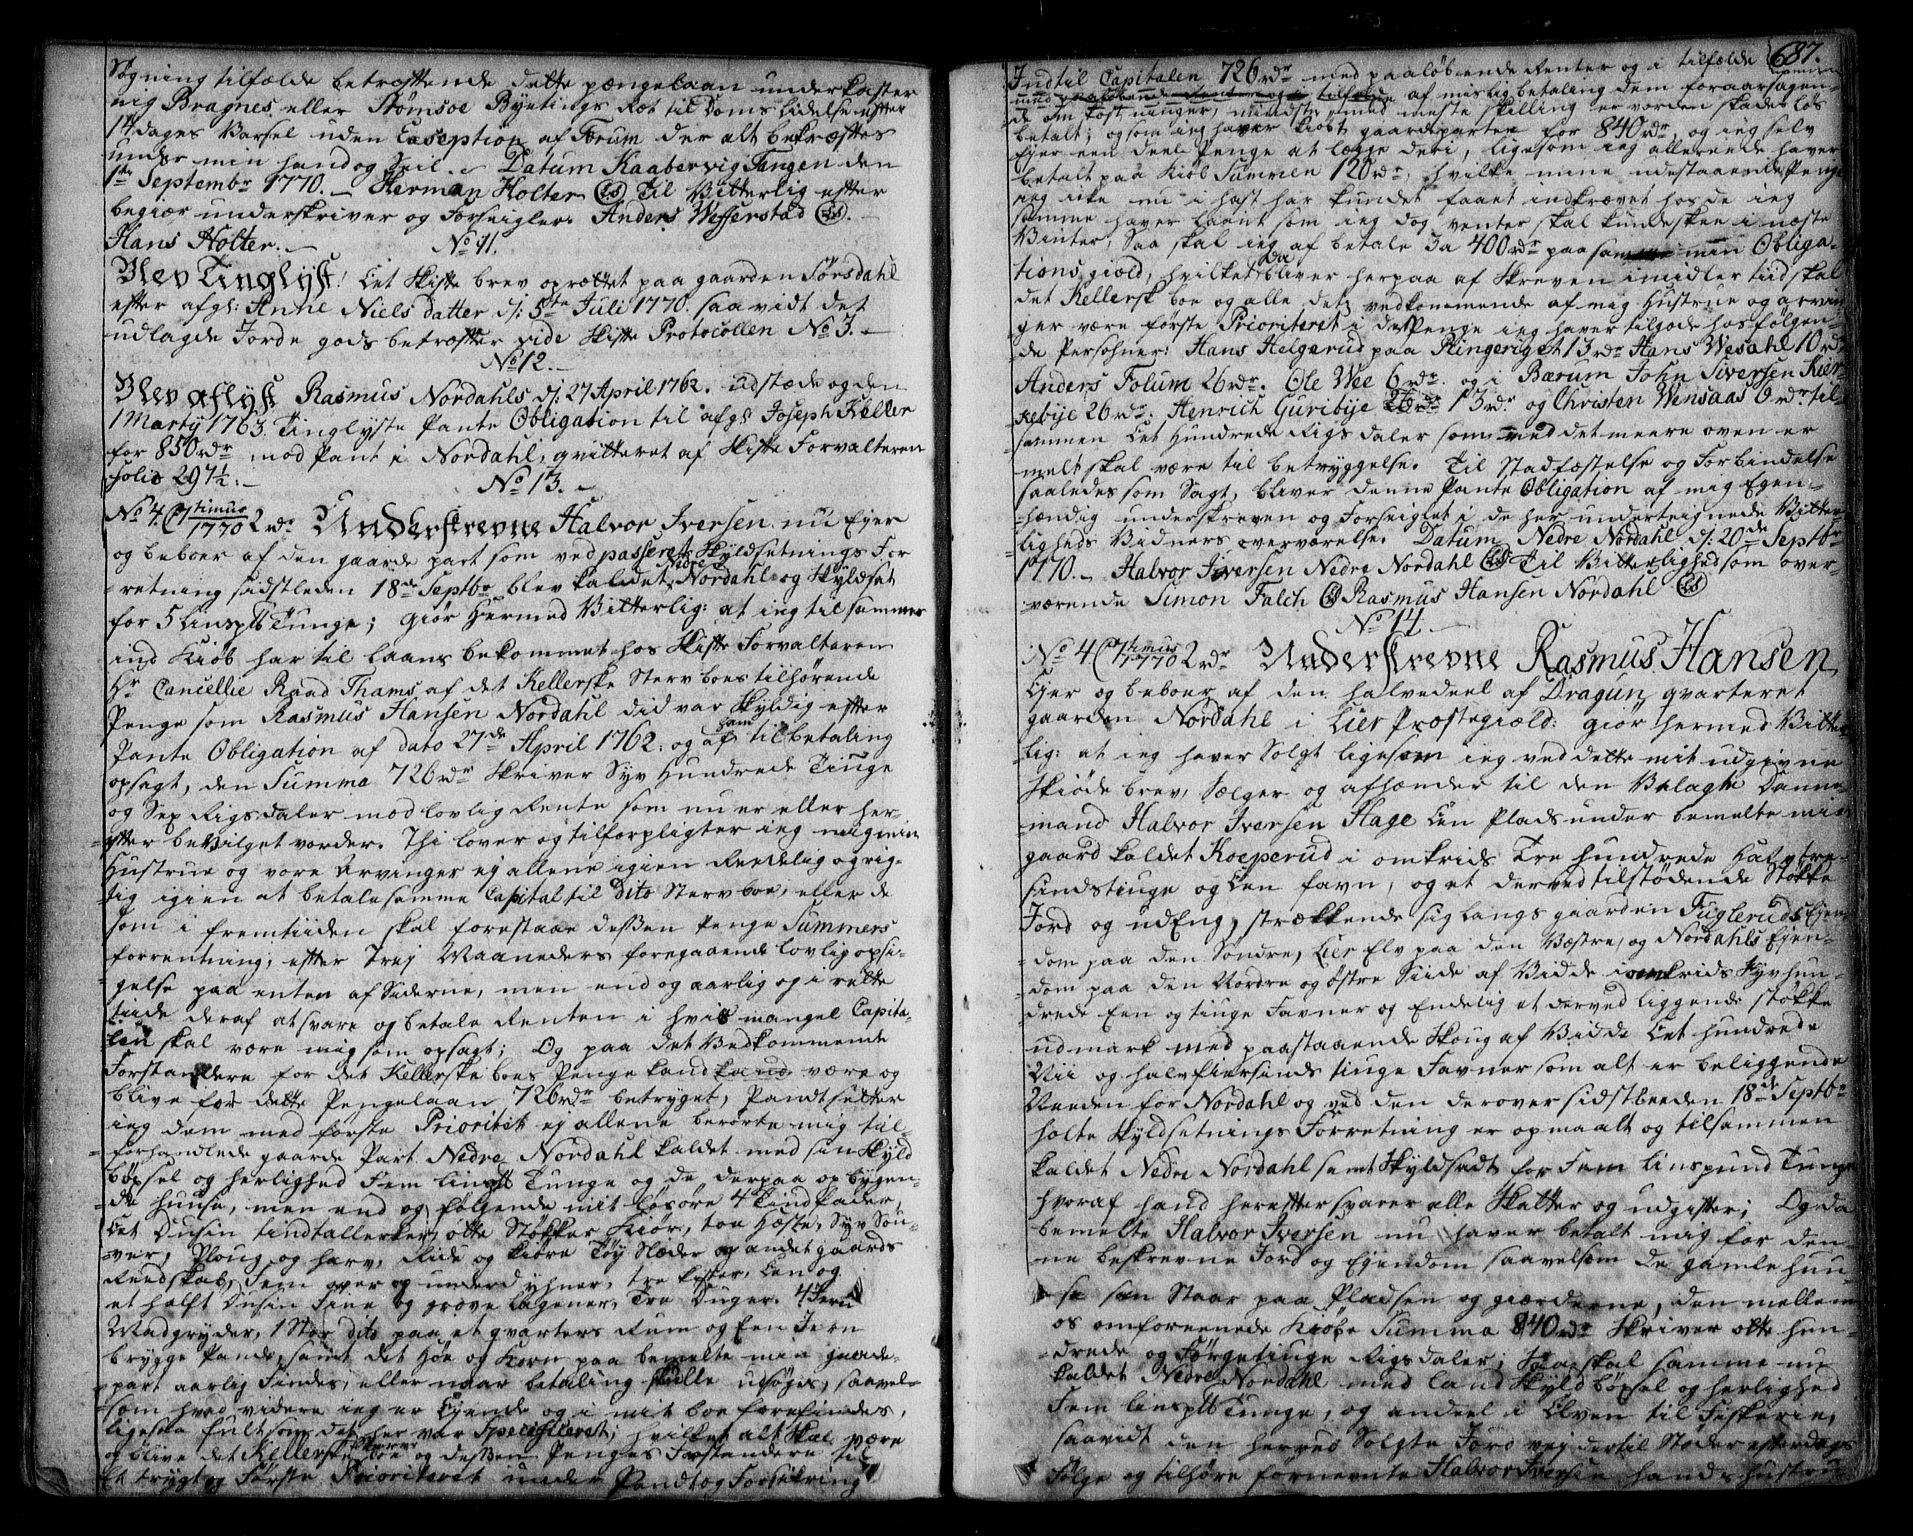 Søgning tilfælde betræffende dette pængelaan underkaster
mig Bragnes eller Strømsøe Byetings Ret til Doms Lidelse efter
14 dages Varsel uden Exseption af Forum der alt bekræftes
under min haand og Seil. Datum Kaabervig Tangen den
1te Septembr 1770. Herman Holter (LS) Til Vitterlig efter
begiær underskriver og Forseigler Anders Wefferstad (LS).
Hans Holter.
No 11.
Blev Tinglyst! Eet Skifte brev oprættet paa gaarden Sørsdahl
efter afgl: Anne Niels datter d: 5te Juli 1770. saa vidt det
udlagde Jorde gods betræffer vide Skifte Protocollen No 3.
No 12.
Blev aflyst Rasmus Nordahls d: 27 April 1762. udstæde og den
1 Marty 1763. Tinglyste Pante Obligation til afgl: Joseph Keller
for 850 rdr mod Pant i Nordahl, qvitteret af Skifte Forvalteren
Folio 297½.
No 13.
No 4. C 7timus 1770 2 rdr Underskrevne Halvor Iversen nu Ejer
og beboer af den gaarde part som ved passeret Skyldsetnings For
retning sidstleden 18de Septbr blev kaldet Nedre Nordahl og Skyldsat
for 5 Linspd Tunge; giør Hermed Vitterlig: at ieg til sammes
ind Kiøb har til laans bekommet hos Skifte Forvalteren
Hr Cancellie Raad Thams af det Kellerske Sterv boes tilhørende
Penge som Rasmus Hansen Nordahl did var skyldig efter
Pante Obligation af dato 27de April 1762. og af ham til betaling
opsagt, den Summa 726 rdr Skriver Syv Hundrede Tiuge
og Sex Rigsdaler mod lovlig Rente som nu er eller her
efter beVilget vorder. Thi lover og tilforpligter ieg mig min
Hustrue og vore Arvinger ej allene igien Reedelig og rig-
tig igien at betale samme Capital til Dito Sterv boe, eller de
som i fremtiiden skal forestaae deßen Penge Summers
forrentning, efter Trej Maaneders foregaaende lovlig opsi-
gelse paa enten af Siderne, men end og aarlig og i rette
tiide deraf at svare og betale Renten i hvis mangel Capita-
len skal være mig som opsagt; Og paa det Vedkommende
Forstandere for det Kellerske boes Penge kand kand være og
blive for dette Pengelaan 726 rdr betryget, Pandtsetter
ieg dem med første Prioritet ej allene berørte mig til-
forhandlede gaarde Part Nedre Nordahl kaldet med sin Skyld
bøxsel og herlighed Fem Linspd Tunge og de derpaa op bygen-
de huuse, men end og følgende mit Løsøre 4 Tind Fader,
Eet Dusin tindtallerker, otte Støkker Kiør, toe Hæste, Syv Sou-
ver, Ploug og harv, Ride og kiøre Tøy Slæder og andet gaards
Reedskab, Fem over og under Dyhner, tre kister, Een og
et halft Dusin Fine og grove Lagener, Tre Duger. 4 Jern
Madgryder, 1 Stor dito paa et qvarters Rum og Een Jern
brygge Pande, samt det Høe og Korn paa bemelte min gaarde-
part aarlig Findes, eller naar betaling skulle udsøges, saavel-
som hvad videre ieg er Ejende og i mit boe forefindes,
ligesaa fult som det her var Specificeret; hvilket alt skal være
og blive det Kellerske Sterv boe og deßen Penges Forstandere til
et trygt og Første Prioriteret under Pandt og Forsikring
687.
Indtil Capitalen 726 rdr med paaløbende Renter og i tilfælde
af mislig betaling dem foraarsagen-
de om kostninger, mindste med meste skilling er vorden skadesløs
betalt; og som ieg haver kiøbt gaardeparten for 840 rdr, og ieg selv
Ejer een deel Penge at lægge deri, ligesom ieg allereede haver
betalt paa Kiøb Summen 120 rdr, hvilke mine udestaaende Penge
ieg ikke nu i hast har kundet faaet indkrævet hos de ieg
samme haver laant som ieg dog venter skal kunde skee i næste
Vinter, Saa skal ieg af betale 3a 400 rdr paa samme min Obliga-
tions giold, hvilket da bliver herpaa af Skreven imidler tiid skal
det Kellersk boe og alle det vedkommende af mig Hustrue og arvin
ger være første Prioriteret i de Penge ieg haver tilgode hos følgen-
de Persohner: Hans Helgerud paa Ringeriget 13 rdr Hans Wesahl 10 rdr
Anders Folum 26 rdr. Ole Wee 6 rdr. og i Bærum John Siversen Kier
kebye 26 rdr. Henrich Guribye 13 rdr og Christen Wensaas 6 rdr til-
sammen Eet Hundrede Rigsdaler som med det meere oven er
melt skal være til betryggelse. Til Stadfæstelse og Forbindelse
saaledes som Sagt, bliver denne Pante Obligation af mig Egen-
hændig underskreven og Forseiglet i de her undertegnede Vitter
ligheds Vidners overværelse. Datum Nedre Nordahl d: 20de Septbr
1770. Halvor Iversen Nedre Nordahl (LS) Til Vitterlighed som over-
værende Simon Falch (LS) Rasmus Hansen Nordahl (LS)
No 14.
No 4 C 7timus 1770 2 rdr Underskrevne Rasmus Hansen
Ejer og beboer af den halvedeel af Dragun qvarteret
gaarden Nordahl i Lier Præstegiæld: giør hermed Vitter
lig: at ieg haver Solgt ligesom ieg ved dette mit udgivne
Skiøde brev, Sælger og afhænder til den Velagte Danne-
mand Halvor Iversen Hage Een Plads under bemelte min
gaard kaldet Koeperud i omkrids Tre hundrede Halvtre-
sindstiuge og Een favn, og et derved tilstødende Støkke
Jord og udEng, strækkende sig langs gaarden Fuglerud Ejen
dom paa den Søndre, Lier Elv paa den Væstre, og Nordahls Ejen-
dom paa den Nordre og østre Siide af Vidde i omkrids Syv hun-
drede Een og tiuge Favner og Endelig et derved liggende støkke
udmark med paastaaende Skoug af Vidde Eet hundrede
Nii og halvfiersinds tiuge Favner som alt er beliggende
Neden for Nordahl og ved den derover sidstleeden 18de Septbr
holte Skyldsetnings Forretning er opmaalt og tilsammen
kaldet Nedre Nordahl samt Skyldsadt for Fem Linspund Tunge
hvoraf hand herefter svarer alle Skatter og udgifter; Og da
bemelte Halvor Iversen nu haver betalt mig for den
ne beskrevne Jord og Ejendom saavelsom de gamle huu
se som Staar paa Pladsen og giærderne, den mellem
os omforeenede Kiøbe Summa 840 rdr Skriver otte hun-
drede og Førgetiuge Rigsdaler; Saa skal samme nu
kaldet Nedre Nordahl med Land Skyld bøxsel og herlighed
Fem Linspd Tunge, og andeel i Elven til Fiskerie,
saavidt den herved Solgte Jord vej dertil Støder efterdags
Følge og tilhøre fornevnte Halvor Iversen hands hustru